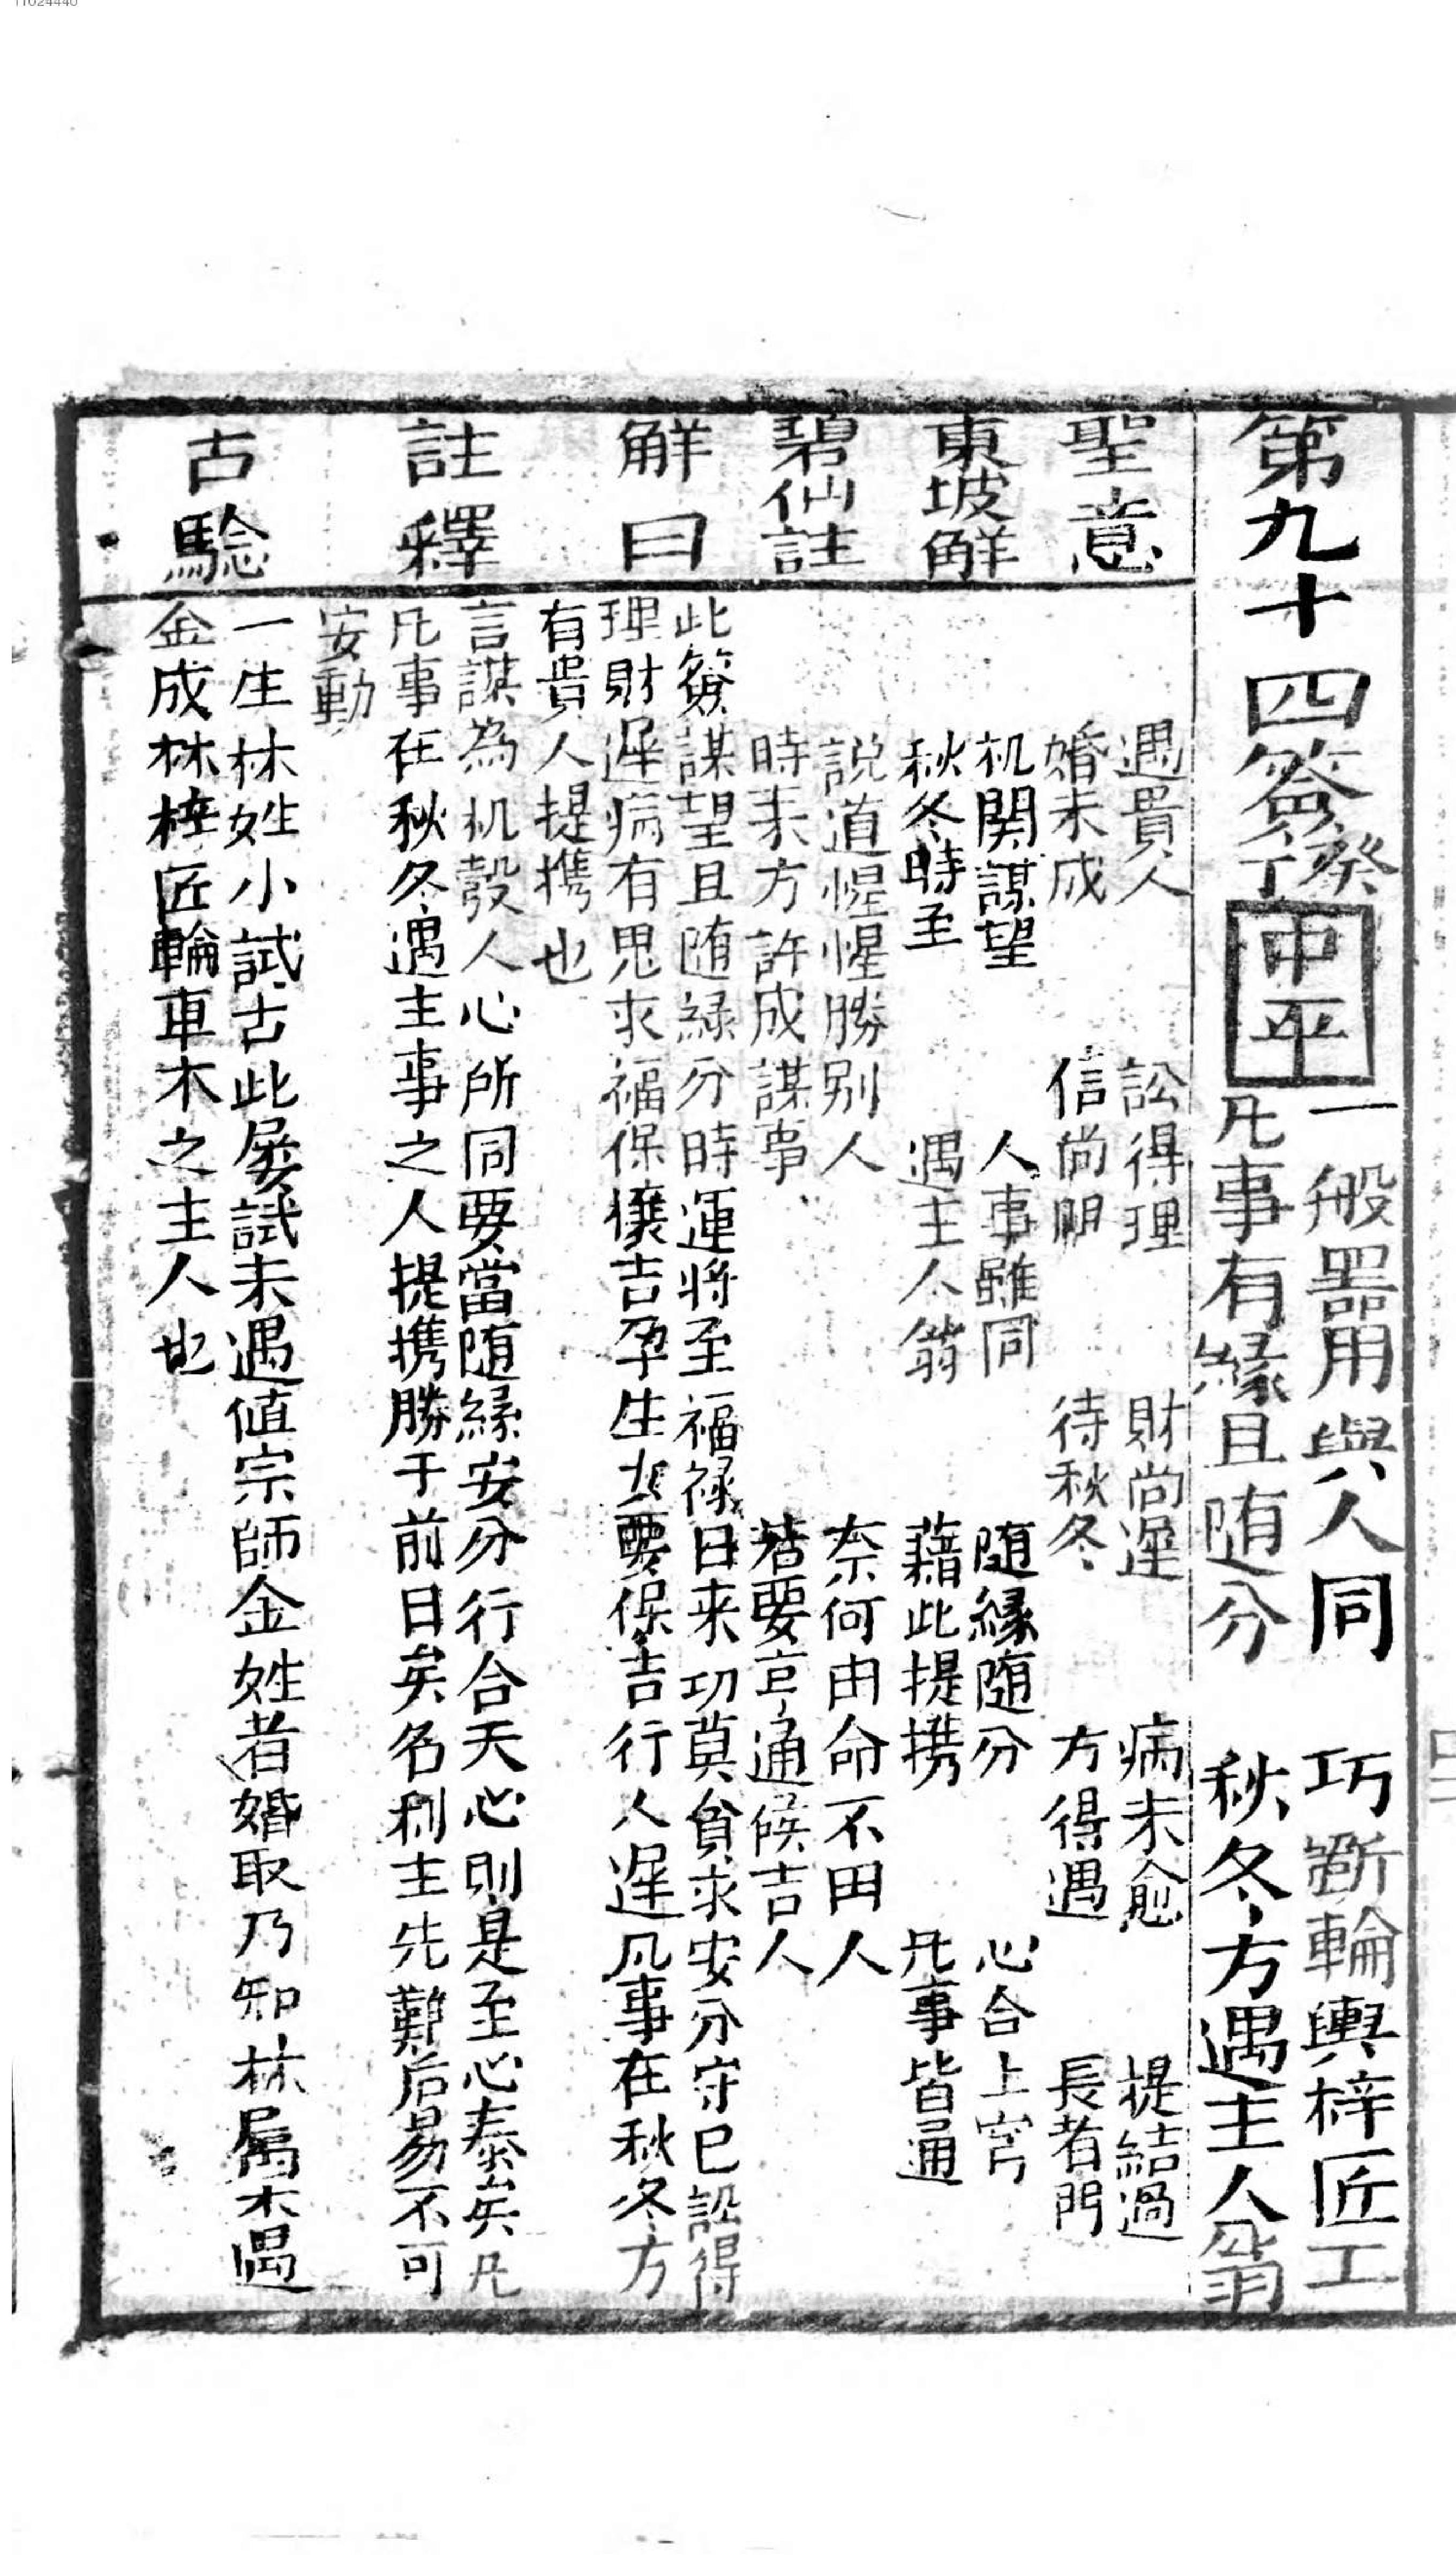 11024440
第九十四簽 癸丁 中平
一般噐用與人同 巧斵輪輿梓匠工
凡事有緣且随分 秋冬方遇主人翁
聖意
遇貴人 訟得理 財尚遲 病未愈 提結過
婚未成 信尚明 待秋冬 方得遇 長者門
東坡解
机関謀望 人事雖同 随緣随分 心合上穹
秋冬時至 遇主人翁 藉此提携 凡事皆通
碧仙註
說道惺惺勝别人 奈何由命不由人
時来方許成謀事 若要亨通候吉人
解曰
此簽謀望且随緣分時運将至福禄日来切莫貪求安分守己訟得
理財遲病有鬼求福保禳吉孕生女要保吉行人遲凡事在秋冬方
有貴人提携也
註釋
言謀為机彀人心所同要當随緣安分行合天心則是至心泰矣凡
凡事在秋冬遇主事之人提携勝于前日矣名利主先難后易不可
妄動
古驗
一生林姓小試古此屡試未遇值宗師金姓者婚取乃知林属木遇
金成林梓匠輪車木之主人也